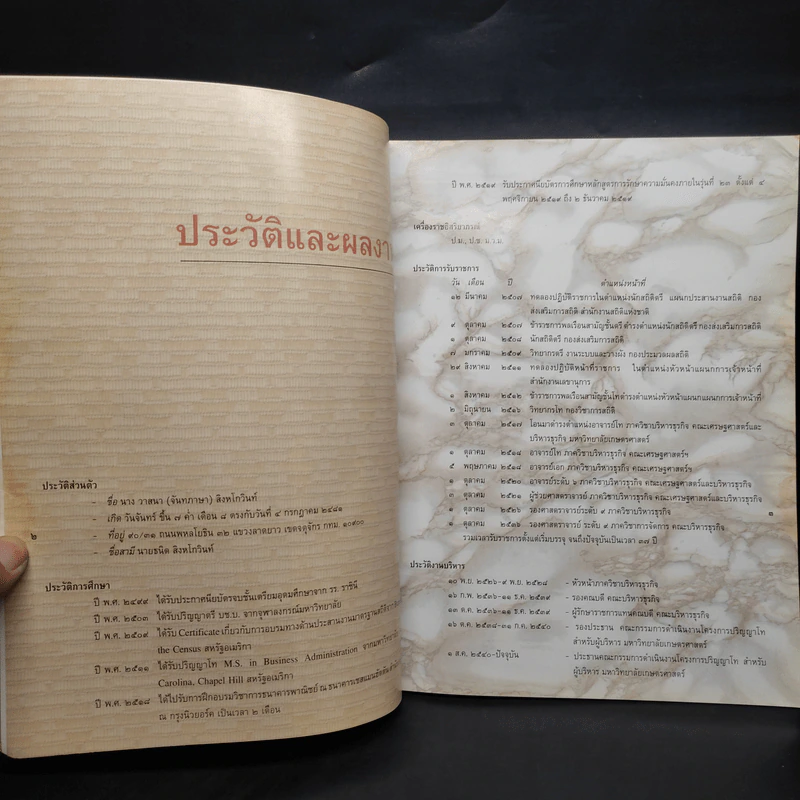 ประวัติและผลงา
ประวัติส่วนตัว
- ชื่อ นาง วาสนา (จันทภาษา) สิงหโกวินท์
- เกิด วันจันทร์ ขึ้น ๗ ค่ำ เดือน ๘ ตรงกับวันที่ ๔ กรกฎาคม ๒๔๘๑
- ที่อยู่ ๙๐/๓๑ ถนนพหลโยธิน ๓๒ แขวงลาดยาว เขตจตุจักร กทม. ๑๐๙๐๐
- ชื่อสามี นายธนิต สิงหโกวินท์
๒
ประวัติการศึกษา
ปี พ.ศ. ๒๔๙๙ ได้รับประกาศนียบัตรจบชั้นเตรียมอุดมศึกษาจาก รร. ราชินี
ปี พ.ศ. ๒๕๐๓ ได้รับปริญญาตรี บช.บ. จากจุฬาลงกรณ์มหาวิทยาลัย
ปี พ.ศ. ๒๕๐๙ ได้รับ Certificate เกี่ยวกับการอบรมทางด้านประสานงานมาตรฐานสถิติ
the Census สหรัฐอเมริกา
ปี พ.ศ. ๒๕๑๑ ได้รับปริญญาโท M.S. in Business Administration จากมหาวิทยาลัย
Carolina, Chapel Hill สหรัฐอเมริกา
ปี พ.ศ. ๒๕๑๘ ได้ไปรับการฝึกอบรมวิชาการธนาคารพาณิชย์ ณ ธนาคารเชสแมนฮัตตัน
ณ กรุงนิวยอร์ค เป็นเวลา ๒ เดือน
ปี พ.ศ. ๒๕๑๙ รับประกาศนียบัตรการศึกษาหลักสูตรการรักษาความมั่นคงภายในรุ่นที่ ๒๓ ตั้งแต่ ๔
พฤศจิกายน ๒๕๑๙ ถึง ๒ ธันวาคม ๒๕๑๙
เครื่องราชอิสริยาภรณ์
ป.ม., ป.ช. ม.ว.ม.
ประวัติการรับราชการ
วัน เดือน ปี ตำแหน่งหน้าที่
๑๒ มีนาคม ๒๕๐๗ ทดลองปฏิบัติราชการในตำแหน่งนักสถิติตรี แผนกประสานงานสถิติ กอง
ส่งเสริมการสถิติ สำนักงานสถิติแห่งชาติ
๙ ตุลาคม ๒๕๐๗ ข้าราชการพลเรือนสามัญชั้นตรี ดำรงตำแหน่งนักสถิติตรี กองส่งเสริมการสถิติ
๑ ตุลาคม ๒๕๐๘ นักสถิติตรี กองส่งเสริมการสถิติ
๗ มกราคม ๒๕๐๙ วิทยากรตรี งานระบบและวางผัง กองประมวลผลสถิติ
๒๙ สิงหาคม ๒๕๑๑ ทดลองปฏิบัติหน้าที่ราชการ ในตำแหน่งหัวหน้าแผนกการเจ้าหน้าที่
สำนักงานเลขานุการ
๑ สิงหาคม ๒๕๑๒ ข้าราชการพลเรือนสามัญชั้นโทดำรงตำแหน่งหัวหน้าแผนกแผนกการเจ้าหน้าที่
๒ มิถุนายน ๒๕๑๖ วิทยากรโท กองวิชาการสถิติ
๓ ตุลาคม ๒๕๑๗ โอนมาดำรงตำแหน่งอาจารย์โท ภาควิชาบริหารธุรกิจ คณะเศรษฐศาสตร์และ
บริหารธุรกิจ มหาวิทยาลัยเกษตรศาสตร์
๑ ตุลาคม ๒๕๑๘ อาจารย์โท ภาควิชาบริหารธุรกิจ คณะเศรษฐศาสตร์ฯ
๕ พฤษภาคม ๒๕๑๘ อาจารย์เอก ภาควิชาบริหารธุรกิจ คณะเศรษฐศาสตร์ฯ
๑ ตุลาคม ๒๕๒๐ อาจารย์ระดับ ๖ ภาควิชาบริหารธุรกิจ คณะเศรษฐศาสตร์และบริหารธุรกิจ
๓ ตุลาคม ๒๕๒๑ ผู้ช่วยศาสตราจารย์ ภาควิชาบริหารธุรกิจ คณะเศรษฐศาสตร์และบริหารธุรกิจ
๑ ตุลาคม ๒๕๒๘ รองศาสตราจารย์ระดับ ๙ ภาควิชาบริหารธุรกิจ คณะเศรษฐศาสตร์และบริหารธุรกิจ
๓
๑ ตุลาคม ๒๕๓๖ รองศาสตราจารย์ ระดับ ๙ ภาควิชาการจัดการ คณะบริหารธุรกิจ
รวมเวลารับราชการตั้งแต่เริ่มบรรจุ จนถึงปัจจุบันเป็นเวลา ๓๗ ปี
ประวัติงานบริหาร
๑๐ พ.ย. ๒๕๒๖-๙ พ.ย. ๒๕๒๘ - หัวหน้าภาควิชาบริหารธุรกิจ
๑๖ ก.พ. ๒๕๓๖-๑๑ ธ.ค. ๒๕๓๙ - รองคณบดี คณะบริหารธุรกิจ
๑๓ ต.ค. ๒๕๓๖-๑๑ ธ.ค. ๒๕๓๙ - ผู้รักษาราชการแทนคณบดี คณะบริหารธุรกิจ
๑๖ ต.ค. ๒๕๓๘-๓๑ ก.ค. ๒๕๔๐ - รองประธาน คณะกรรมการดำเนินงานโครงการปริญญาโท
สำหรับผู้บริหาร มหาวิทยาลัยเกษตรศาสตร์
๑ ส.ค. ๒๕๔๐-ปัจจุบัน - ประธานคณะกรรมการดำเนินงานโครงการปริญญาโท สำหรับ
ผู้บริหาร มหาวิทยาลัยเกษตรศาสตร์